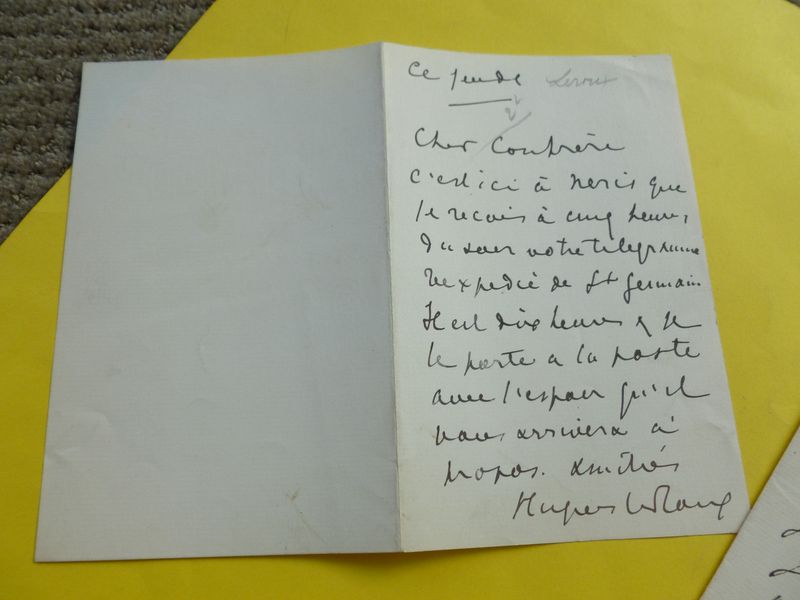 Ce jeudi Leroux
Cher Confrère
C'est ici à Neris que
je recois à cinq heures
du soir votre telegramme
reexpedié de St Germain
Il est dix heures & je
le porte a la poste
avec l'espoir qu'il
vous arrivera à
propos. Amitiés
Hugues Le Roux